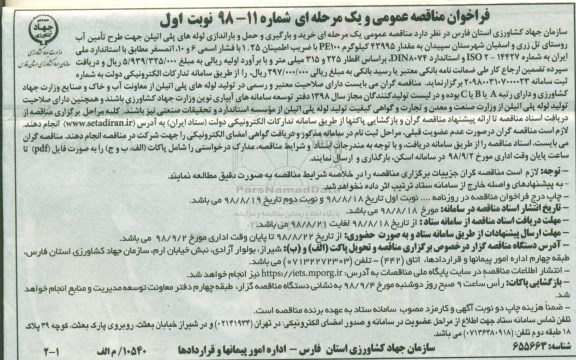 فراخوان مناقصه عمومی و یک مرحله ای شماره ۱۱-۹۸ نوبت اول
سازمان جهاد کشاورزی استان فارس در نظر دارد مناقصه عمومی یک مرحله ای خرید و بارگیری و حمل و باراندازی لوله های پلی اتیلن جهت طرح تأمین آب
روستای تل زری و اسفیان شهرستان سپیدان به مقدار ۴۳۹۹۵ کیلوگرم PE۱۰۰ با ضریب اطمینان ۱.۲۵ با فشار اسمی ۶ و ۱۰ اتمسفر مطابق با استاندارد ملی
ایران به شماره ۱۴۴۲۷ - ISO ۲ و استاندارد DIN۸۰۷۴، براساس اقطار ۲۲۵ و ۳۱۵ میلی متر و با برآورد اولیه ریالی به مبلغ ۵/۹۳۹/۳۲۵/۰۰۰ ریال و با
سپرده تضمین ارجاع کار طی ضمانت نامه بانکی معتبر یا رسید بانکی به مبلغ ریالی ۲۹۷/۰۰۰/۰۰۰ ریال، را از طریق سامانه تدارکات الکترونیکی دولت به شماره
ثبت سامانه ۲۰۹۸۰۰۳۱۰۷۰۰۰۰۲۳ برگزار نماید. مناقصه گران می بایست دارای صلاحیت معتبر و رسمی در تولید لوله های پلی اتیلن از معاونت آب و خاک و صنایع وزارت جهاد
کشاورزی و دارای رتبه A یا B یا C بوده و در لیست تولیدکنندگان مجاز سال ۱۳۹۸ دفتر توسعه سامانه های آبیاری نوین وزارت جهاد کشاورزی باشند و همچنین دارای صلاحیت
تولید لوله پلی اتیلن از وزارت صنعت و معدن و تجارت و گواهی کیفیت تولید لوله پلی اتیلن از مؤسسه استاندارد و تحقیقات صنعتی نیز باشند. کلیه مراحل برگزاری مناقصه از
دریافت اسناد مناقصه تا ارائه پیشنهاد مناقصه گران و بازگشایی پاکتها از طریق سامانه تدارکات الکترونیکی دولت (ستاد ایران) به آدرس (www.setadiran.ir) انجام دهند.
لازم است مناقصه گران درصورت عدم عضویت قبلی، مراحل ثبت نام در سامانه مذکور و دریافت گواهی امضای الکترونیکی را جهت شرکت در مناقصه انجام دهند. مناقصه گران
می بایست، اسناد مناقصه را از طریق سامانه دریافت، و با توجه به مندرجات اسناد و شرایط مناقصه، مدارک درخواستی را شامل پاکت (الف، ب و ج) را به صورت فایل (pdf) تا
ساعت پایان وقت اداری مورخ ۹۸/۹/۲ در سامانه اسکن، بارگذاری و ارسال نمایند.
- توجه: لازم است مناقصه گران جزییات برگزاری مناقصه را در خلاصه شرایط مناقصه به صورت دقیق مطالعه نمایند.
- به پیشنهادهای واصله خارج از سامانه ستاد ترتیب اثر داده نخواهد شد.
- چاپ درج فراخوان مناقصه در روزنامه .... نوبت اول تاریخ ۹۸/۸/۱۸ و نوبت دوم تاریخ ۹۸/۸/۱۹ می باشد.
- تاریخ انتشار اسناد مناقصه در سامانه: مورخ ۹۸/۸/۱۸ می باشد.
- مهلت دریافت اسناد مناقصه از سامانه ستاد: از تاریخ ۹۸/۸/۱۸ لغایت ۹۸/۸/۲۱ می باشد.
- مهلت ارسال پیشنهادات از طریق سامانه ستاد و به صورت حضوری: از تاریخ ۹۸/۸/۲۲ تا پایان وقت اداری مورخ ۹۸/۹/۲ می باشد.
- آدرس دستگاه مناقصه گزار درخصوص برگزاری مناقصه و تحویل پاکت (الف) و (ب): شیراز، بولوار آزادی، نبش خیابان ارم، سازمان جهاد کشاورزی استان فارس،
طبقه چهارم اداره امور پیمانها و قراردادها، اتاق (۴۴۲) - تلفن (۰۷۱۳۲۲۷۲۳۰۳) می باشد.
- انتشار اطلاعات مناقصه در سایت پایگاه ملی مناقصات به آدرس: https://iets.mporg.ir نیز انجام خواهد شد.
- بازگشایی پاکات: رأس ساعت ۹ صبح روز دوشنبه مورخ ۹۸/۹/۴ به نشانی دستگاه مناقصه گزار، طبقه چهارم دفتر معاونت توسعه مدیریت و منابع انجام خواهد
شد.
- ضمناً هزینه چاپ دو نوبت آگهی و کارمزد مصوب سامانه ستاد به عهده برنده مناقصه است.
تلفن تماس سامانه ستاد جهت اطلاع از مراحل عضویت در سامانه و صدور امضای الکترونیکی: در تهران (۰۲۱۴۱۹۳۴) و در شیراز خیابان بعثت، روبروی پارک بعثت، کوچه ۳۹ پلاک
۱۸ طبقه دوم تلفن: (۰۷۱۳۶۴۸۰۹۱۸) می باشد.
شناسه: ۶۵۵۶۶۳ سازمان جهاد کشاورزی استان فارس - اداره امور پیمانها و قراردادها ۱۰۵۴۰/م الف ۱-۲